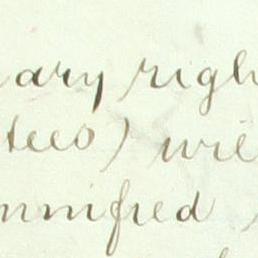 ary righ
tees) wil
nnifred